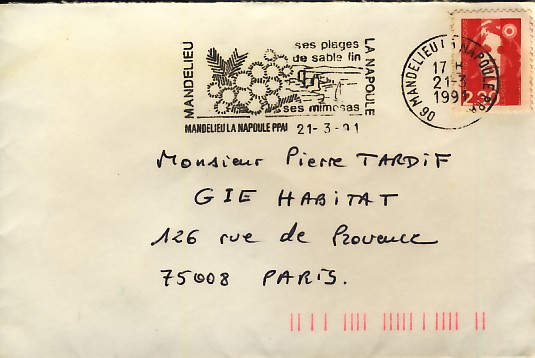 MANDELIEU
ses plages
de sable fin
LA NAPOULE
ses mimosas
MANDELIEU LA NAPOULE PPAL 21-3-91
MANDELIEU LA NAPOULE PPAL
17 H
21-3
1991
06
2.30
Monsieur Pierre TARDIF
GIE HABITAT
126 rue de Provence
75008 PARIS.